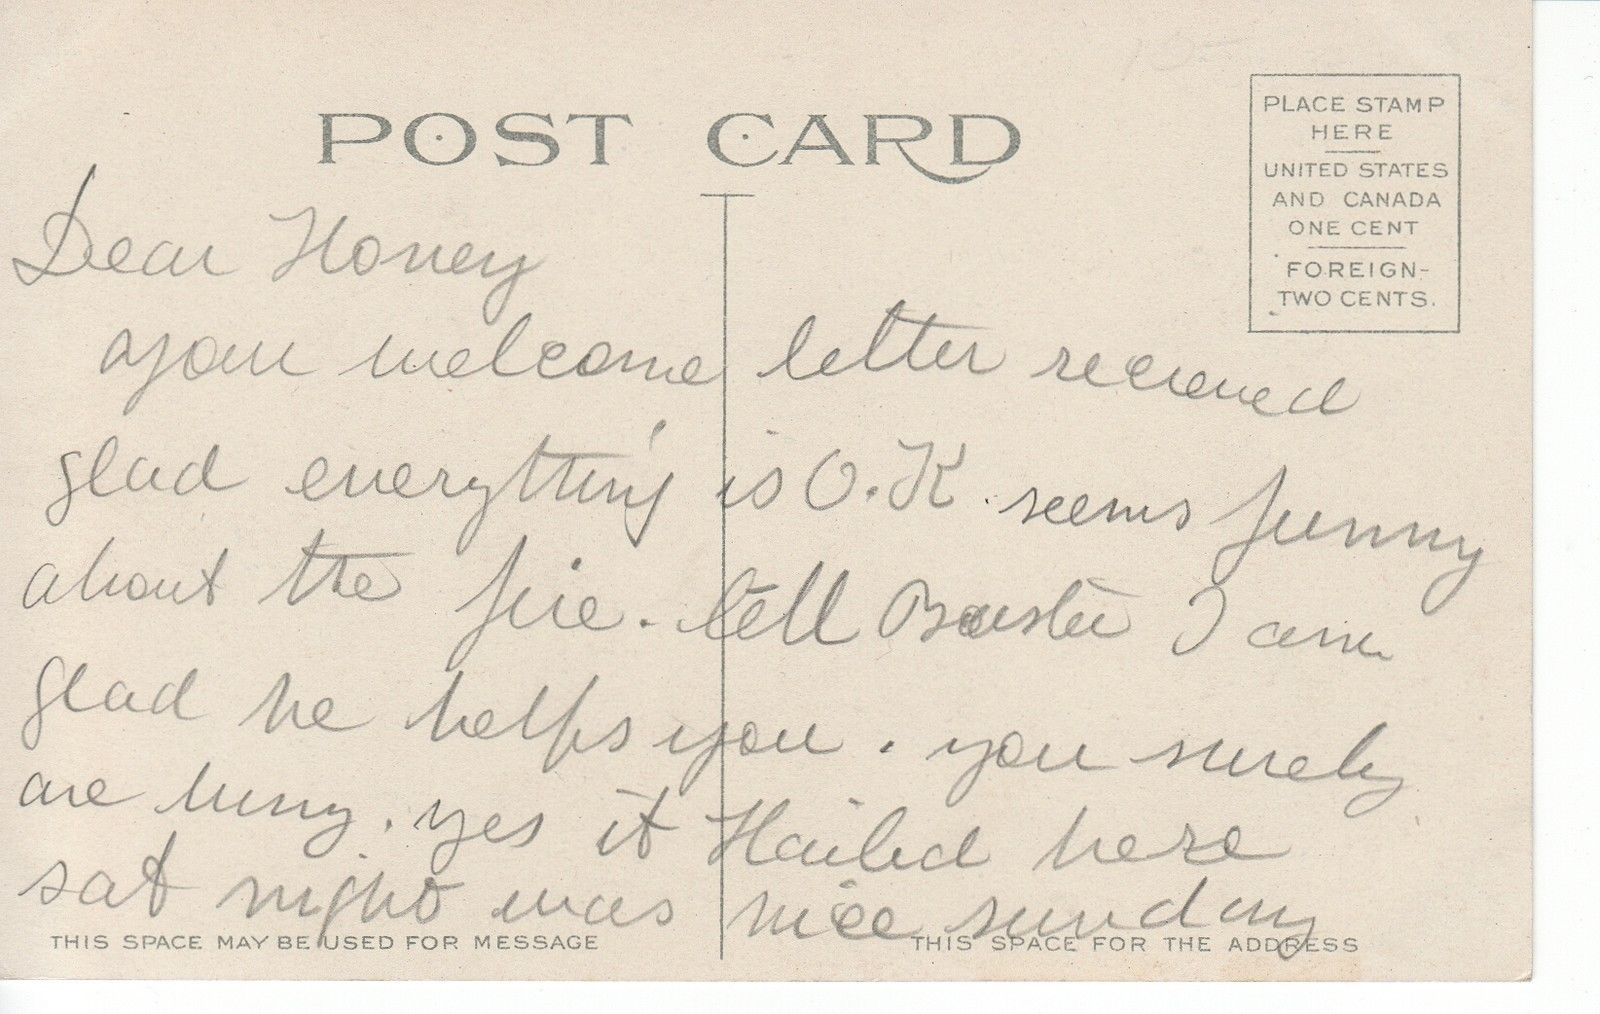 POST CARD
PLACE STAMP
HERE
UNITED STATES
AND CANADA
ONE CENT
FOREIGN-
TWO CENTS.
Dear Honey
your welcome letter recieved
glad everything is O.K. seems funny
about the fire. tell Buster I am
glad he helps you. you surely
are busy. yes it Hailed here
sat night was nice sunday
THIS SPACE MAY BE USED FOR MESSAGE
THIS SPACE FOR THE ADDRESS